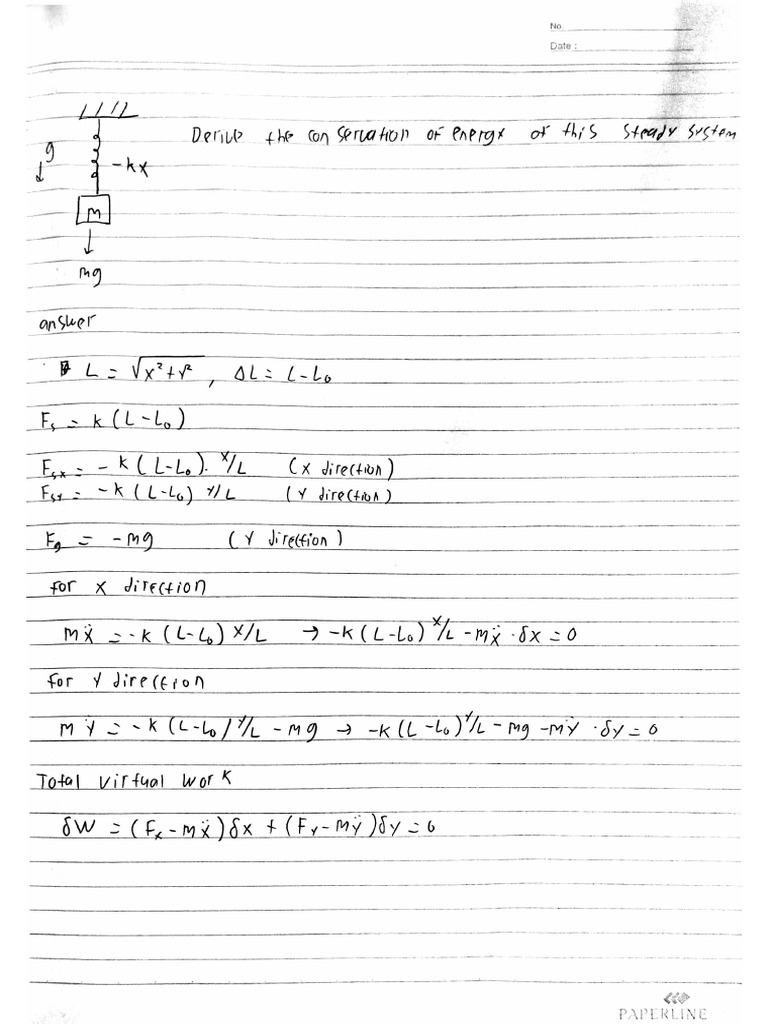 No.
Date :
Derive the conservation of energy of this steady system
g
-kx
m
mg
answer
L = √x²+y² , ΔL = L-L₀
Fₛ = k(L-L₀)
Fₛₓ = -k(L-L₀). x/L (x direction)
Fₛᵧ = -k(L-L₀) y/L (y direction)
F_g = -mg (y direction)
for x direction
mẍ = -k(L-L₀) x/L → -k(L-L₀) x/L - mẍ · δx = 0
for y direction
mÿ = -k(L-L₀) y/L - mg → -k(L-L₀) y/L - mg - mÿ · δy = 0
Total virtual work
δW = (Fₓ - mẍ)δx + (Fᵧ - mÿ)δy = 0
PAPERLINE